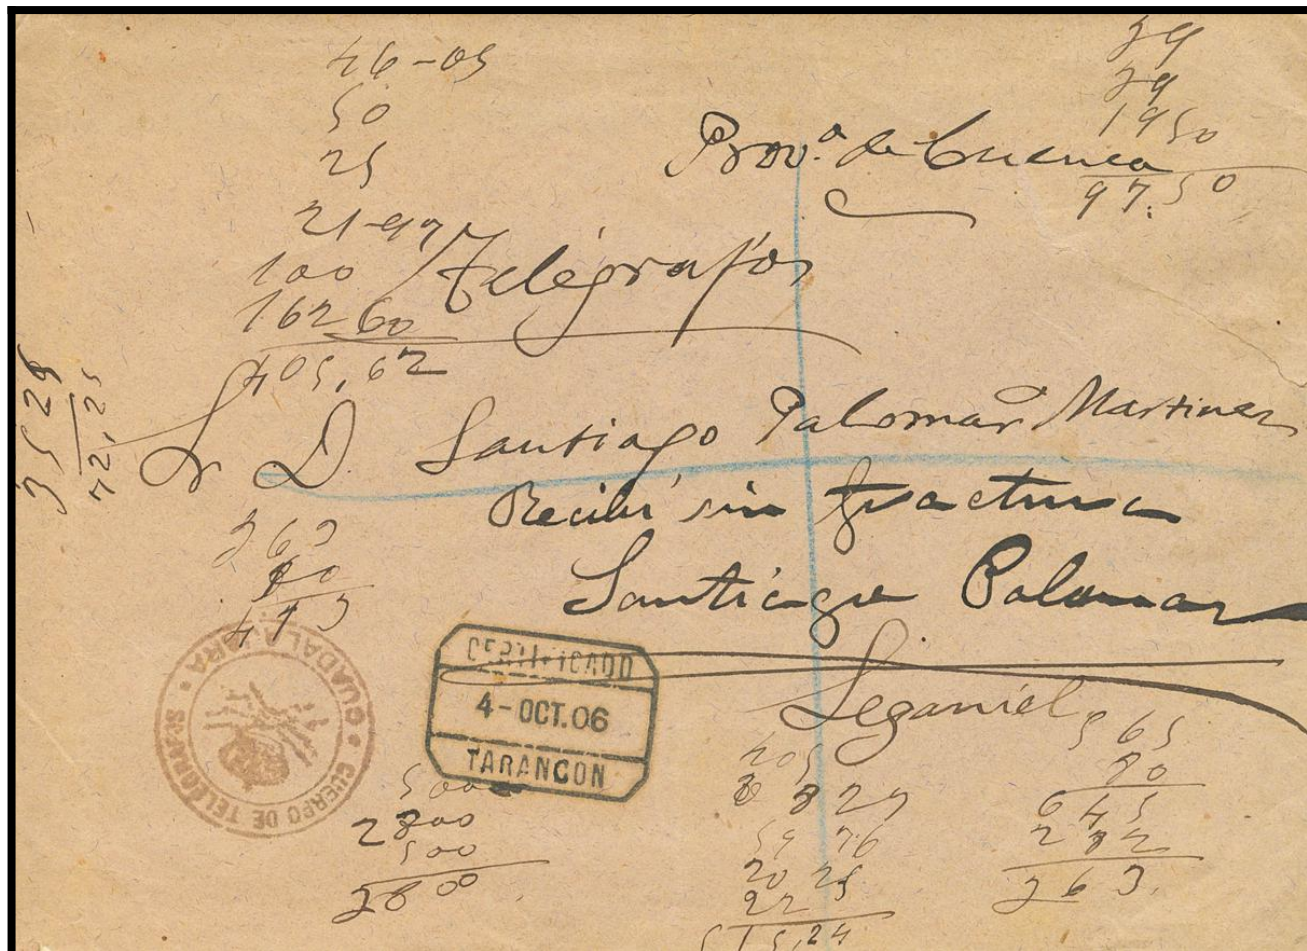 46-05
50
25
21-97
100
162 60
405,62
39
39
19 50
97.50
Prov.ª de Cuenca
Telégrafos
35 25
72,25
Sr D. Santiago Palomar Martinez
Recibí sin fractura
Santiago Palomar
Leganiel
363
473
CUERPO DE TELÉGRAFOS
GUADALAJARA
CERTIFICADO
4-OCT.06
TARANCON
500
500
2800
405
59 76
20 25
22 5
515,24
565
80
645
263